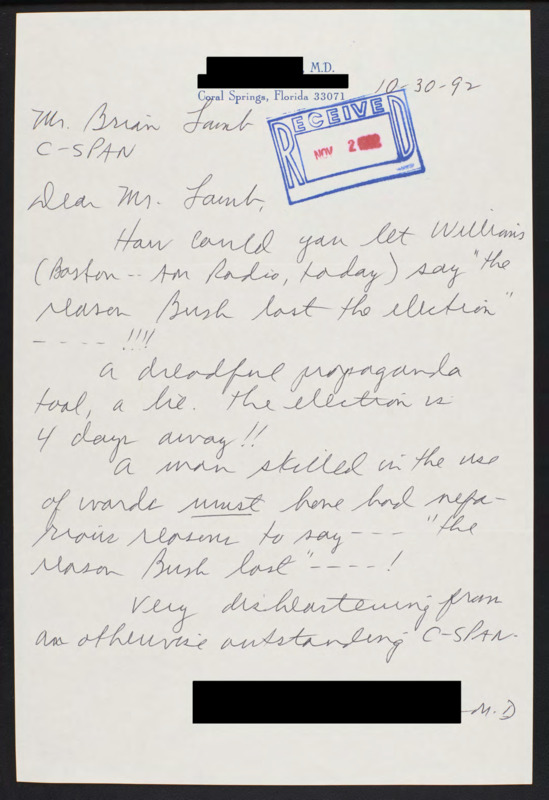 M.D.
Coral Springs, Florida 33071
10-30-92
Mr. Brian Lamb
C-SPAN
RECEIVED
NOV 2
Dear Mr. Lamb,
How could you let Williams
(Boston -- Am Radio, today) say "the
reason Bush lost the election"
---- !!!!
A dreadful propaganda
tool, a lie. The election is
4 days away!!
A man skilled in the use
of words must have had nefa-
rious reasons to say --- "the
reason Bush lost" ---- !
Very disheartening from
an otherwise outstanding C-SPAN.
M.D